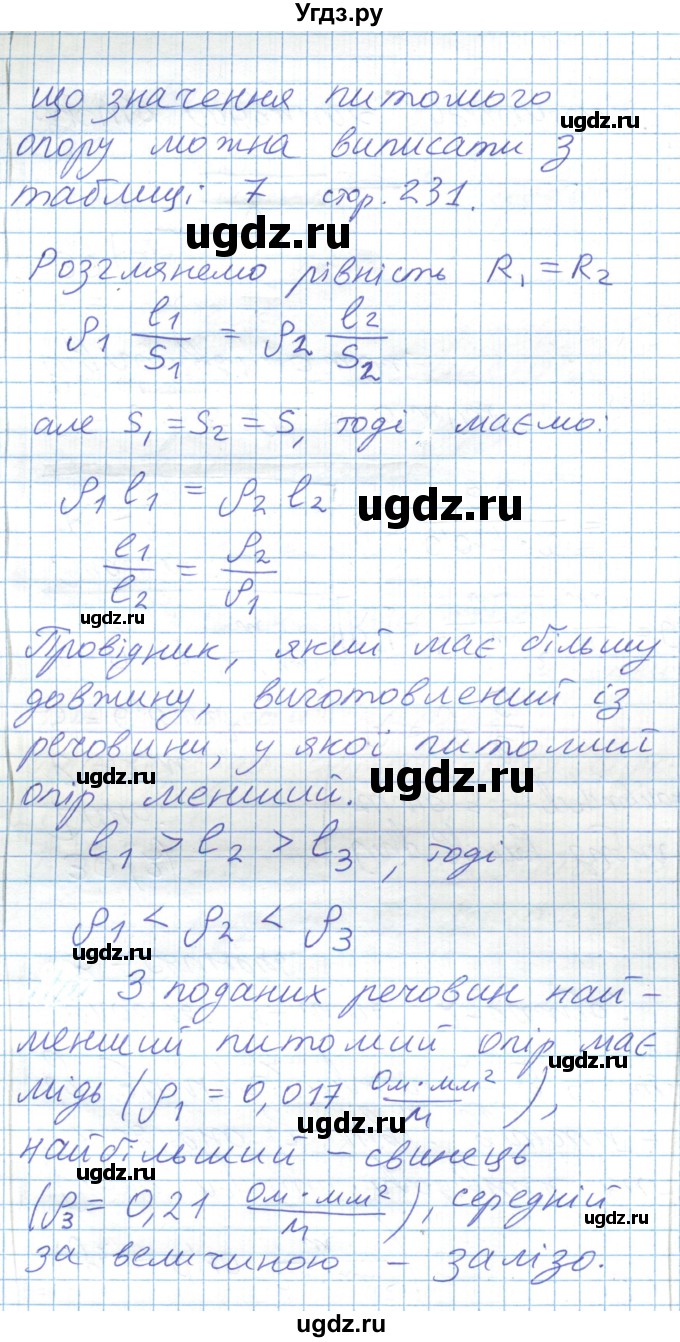 Угдз.ру
що значення питомого
ugdz.ru
опору можна виписати з
таблиці 7 стор. 231.
ugdz.ru
Розглянемо рівність R₁ = R₂
ρ₁ l₁/S₁ = ρ₂ l₂/S₂
ugdz.ru
але S₁ = S₂ = S, тоді маємо:
ρ₁ l₁ = ρ₂ l₂
ugdz.ru
l₁/l₂ = ρ₂/ρ₁
ugdz.ru
Провідник, який має більшу
довжину, виготовлений із
речовини, у якої питомий
ugdz.ru
опір менший.
l₁ > l₂ > l₃, тоді
ρ₁ < ρ₂ < ρ₃
ugdz.ru
З поданих речовин най-
менший питомий опір має
ugdz.ru
мідь (ρ₁ = 0,017 Ом·мм²/м),
найбільший – свинець
ugdz.ru
(ρ₃ = 0,21 Ом·мм²/м), середній
ugdz.ru
за величиною – залізо.
ugdz.ru